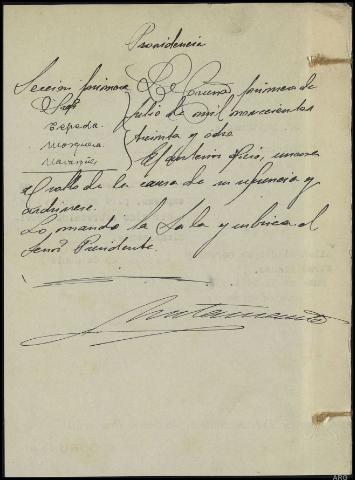 Providencia
Seccion primera
Cepeda
Mosquera
Naranjo
La Coruña primero de
Julio de mil novecientos
treinta y ocho
El anterior oficio, unase
al rollo de la causa de su referencia y
archivese.
Lo mando la Sala y rubrica el
Señor Presidente.
ARG